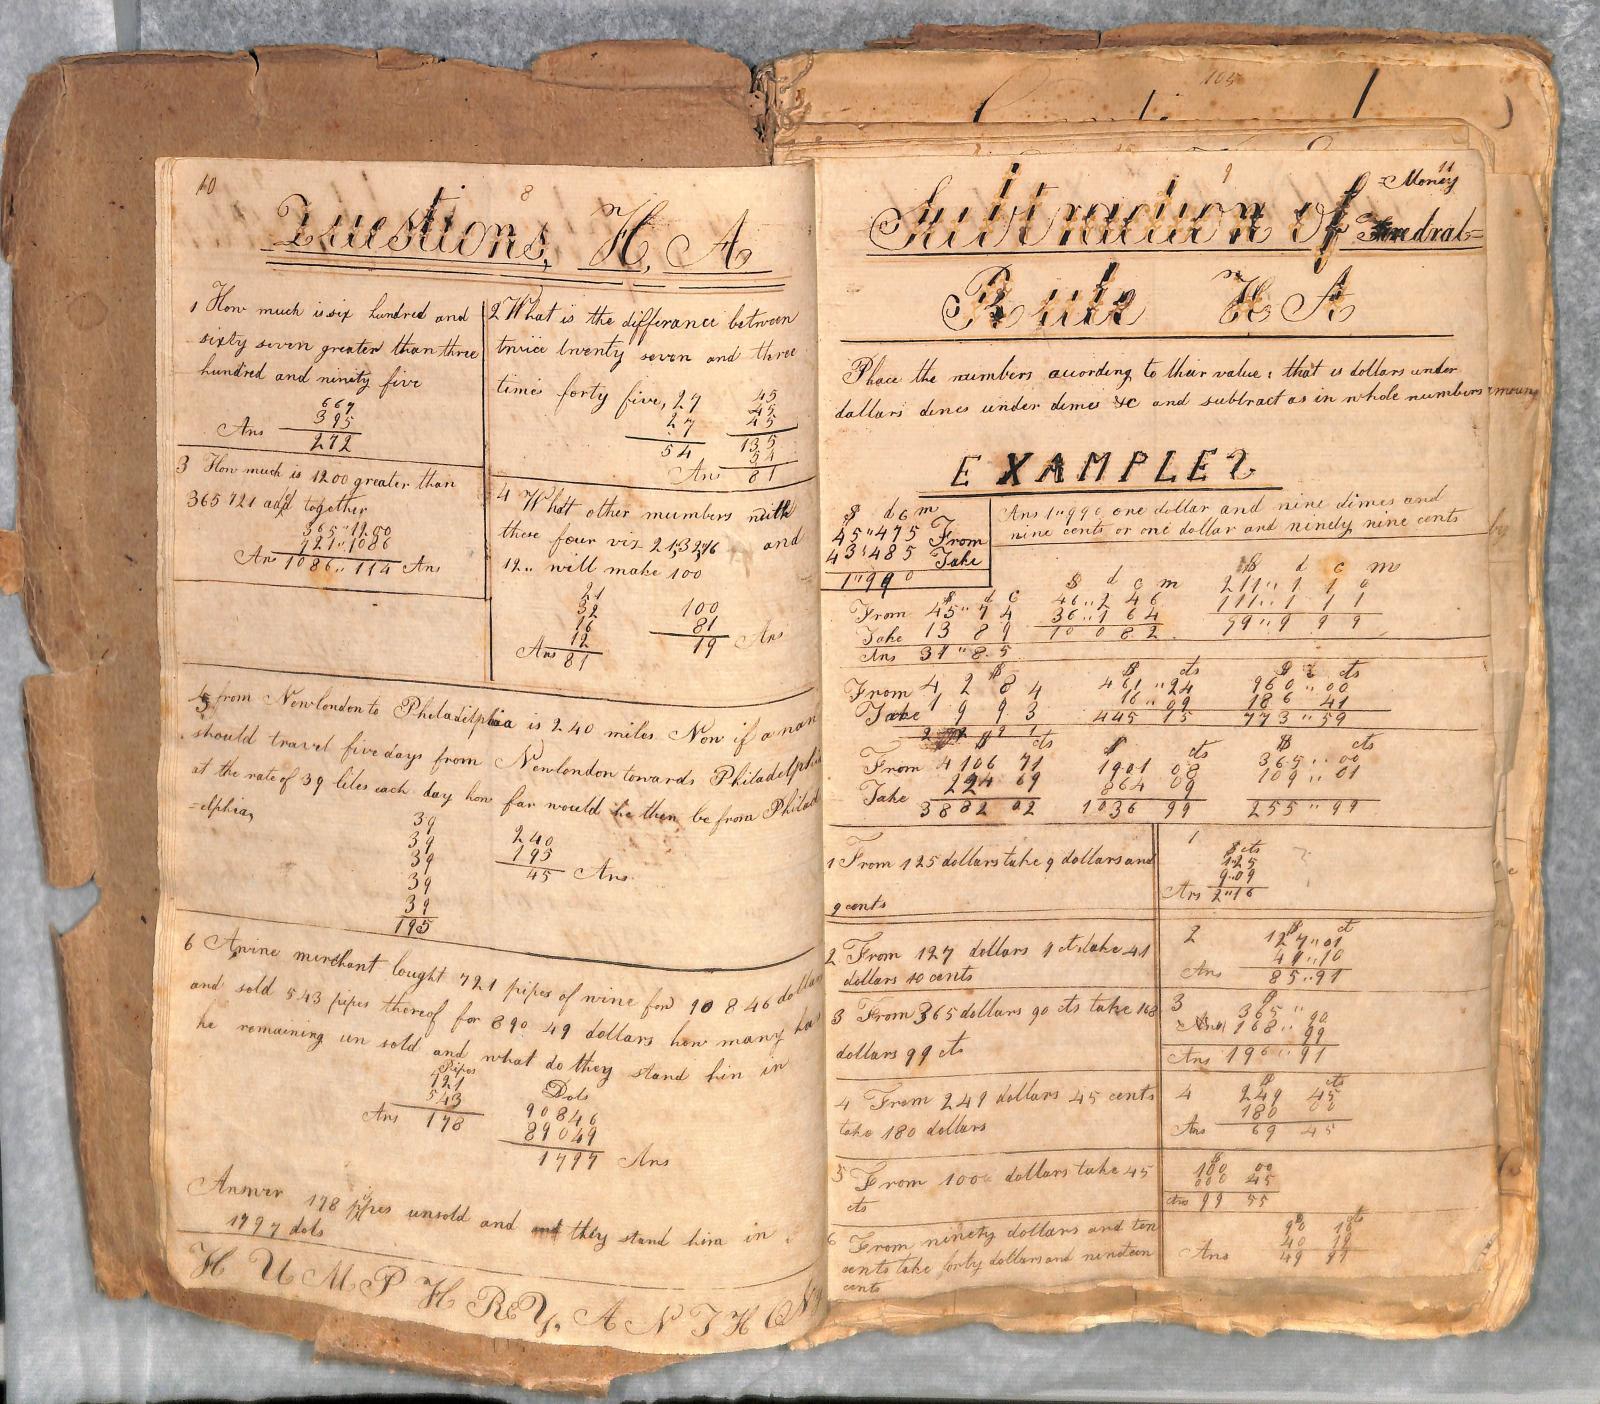 10
8
Questions, H, A
1 How much is six hundred and
sixty seven greater than three
hundred and ninety five
667
395
Ans
272
2 What is the differance between
twice twenty seven and three
times forty five, 27 45
27 45
45
54 135
54
Ans 81
3 How much is 1200 greater than
365 721 add together
365 " 1200
721 " 1086
Ans 1086 " 114 Ans
4 What other numbers with
these four viz 21 32 16 and
12 " will make 100
21
32 100
16 81
12 19 Ans
Ans 81
5 from Newlondon to Philadelphia is 240 miles. Now if a man
should travel five days from Newlondon towards Philadelphia
at the rate of 39 liles each day how far would he then be from Philad
=elphia,
39
39 240
39 195
39 45 Ans
39
195
6 A wine merchant bought 721 pipes of wine for 90846 dollars
and sold 543 pipes thereof for 89049 dollars how many has
he remaining un sold and what do they stand him in
Pipes
721 Dols
543 90846
Ans 178 89049
1797 Ans
Answer 178 pipes unsold and they stand him in
1797 dols
HUMPHREY, ANTHONY
105
9
11
Subtraction of Fredral=
=Money
Rule H A
Place the numbers according to their value: that is dollars under
dollars dines under dimes &c and subtract as in whole numbers
EXAMPLES
$ d c m
45"475 From
43"485 Take
1"990
Ans 1"990 one dollar and nine dimes and
nine cents or one dollar and ninety nine cents
$ d c $ d c m $ d c m
From 45"74 46"246 211"110
Take 13 89 36"164 111"111
Ans 31"85 10 082 99"999
$ $ cts $ cts
From 4284 461"24 960"00
Take 1993 16"09 186 41
445 15 773"59
$ cts $ cts $ cts
From 4106 71 1901 08 365"00
Take 224 69 864 09 109"01
3882 02 1036 99 255"99
1 From 125 dollars take 9 dollars and
9 cents
1
$ cts
125
9"09
Ans 2"16
2 From 127 dollars 1 ct take 41
dollars 10 cents
2
$ ct
127"01
41"10
Ans 85"91
3 From 365 dollars 90 cts take 168
dollars 99 cts
3
$
365"90
168"99
Ans 196"91
4 From 249 dollars 45 cents
take 180 dollars
4
$ cts
249 45
180 00
Ans 69 45
5 From 100 dollars take 45
cts
$
100 00
000 45
Ans 99 55
6 From ninety dollars and ten
cents take forty dollars and nineteen
cents
$ cts
90 10
40 19
Ans 49 91